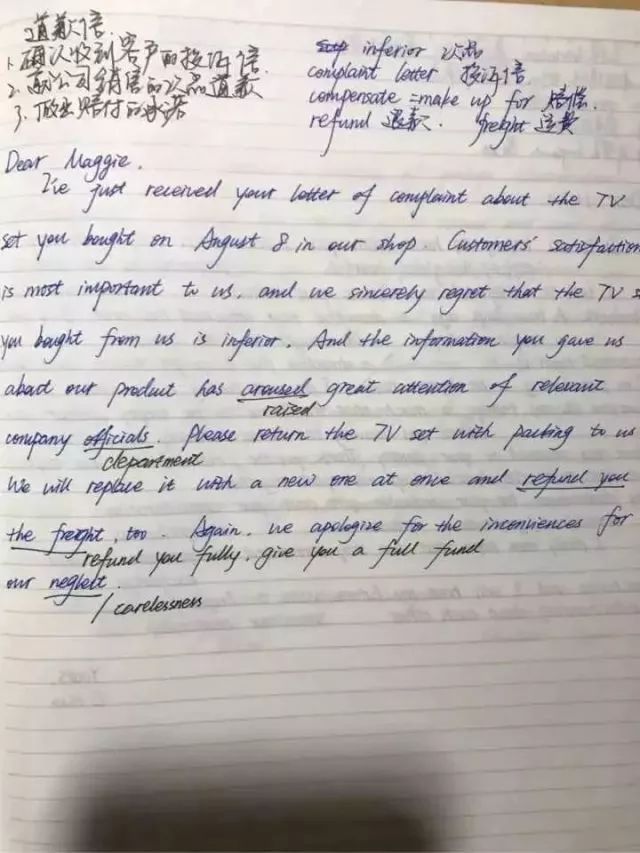 道歉信
1. 确认收到客户的投诉信.
2. 为公司销售的次品道歉
3. 做出赔付的承诺
inferior 次品
complaint lotter 投诉信
compensate =make up for 赔偿.
refund 退款. freight 运费
Dear Maggie.
I've just received your lotter of complaint about the TV
set you bought on August 8 in our shop. Customers' satisfaction
is most important to us, and we sincerely regret that the TV s
you bought from us is inferior. And the information you gave us
about our product has aroused great attention of relevant
raised
company officials. Please return the TV set with packing to us
department
We will replace it with a new one at once and refund you
the freight, too. Again, we apologize for the inconviences for
refund you fully, give you a full fund
our neglect.
/ carelessness